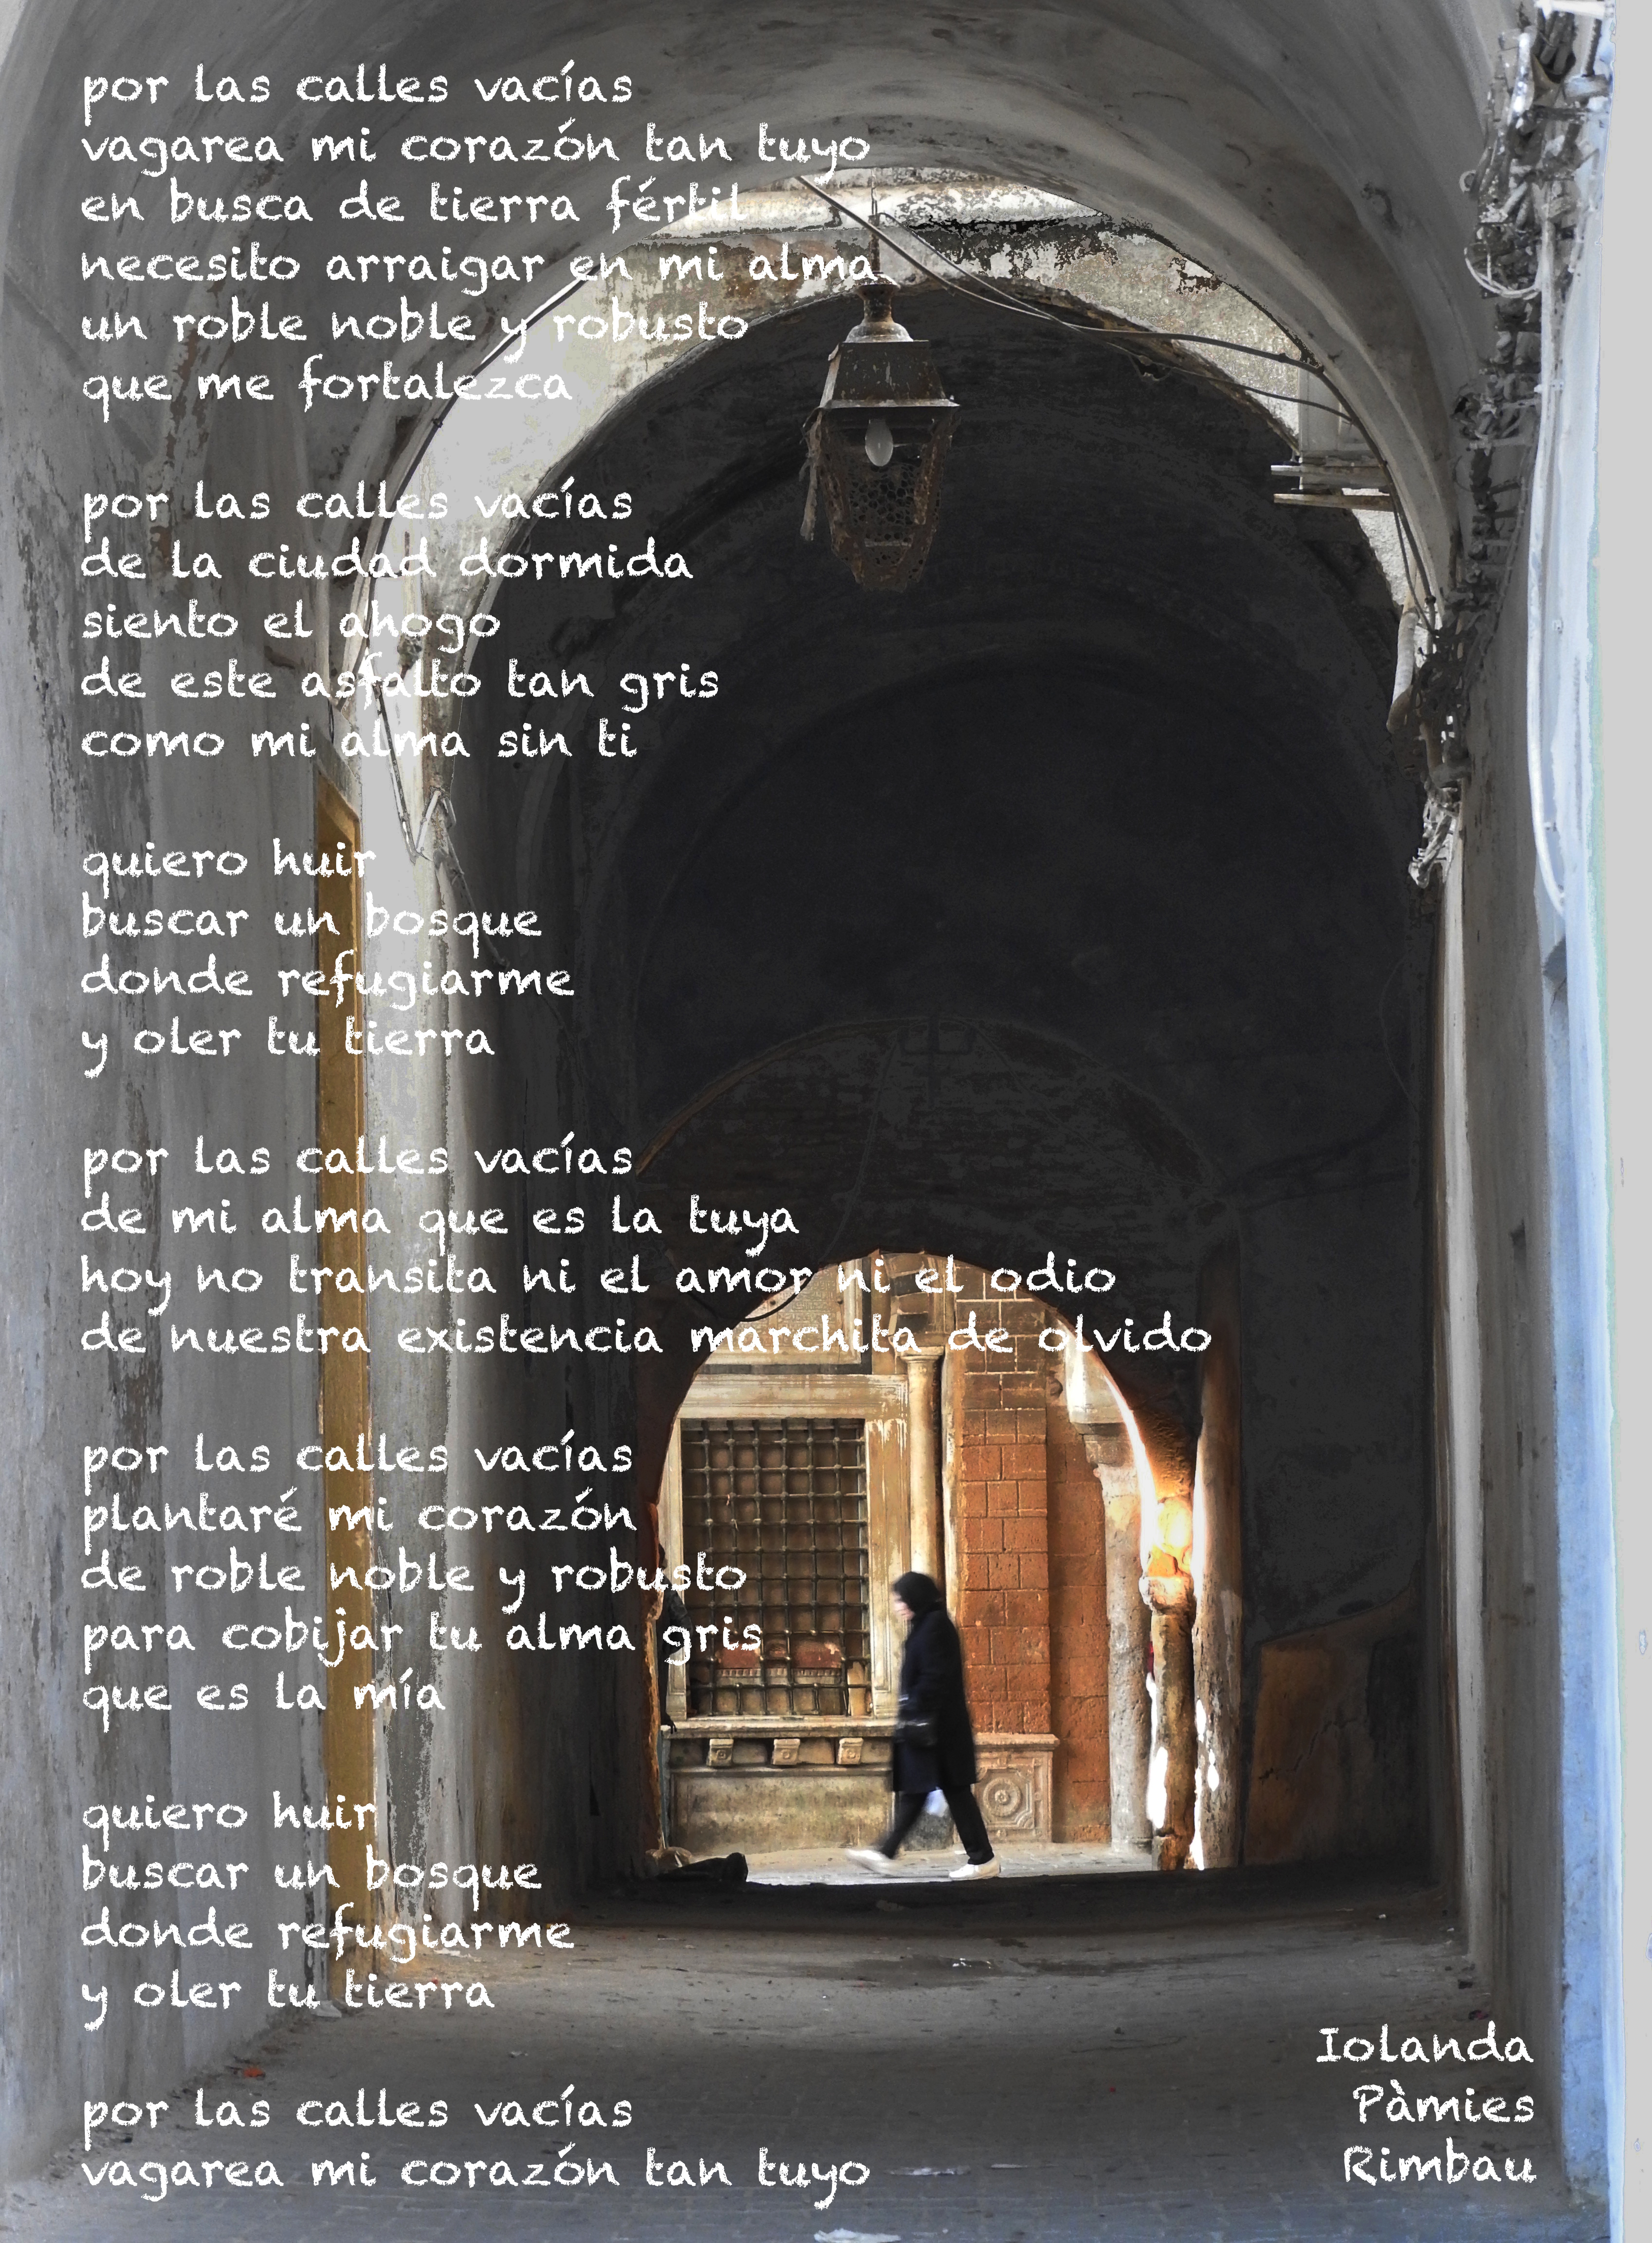 por las calles vacías
vagarea mi corazón tan tuyo
en busca de tierra fértil
necesito arraigar en mi alma
un roble noble y robusto
que me fortalezca
por las calles vacías
de la ciudad dormida
siento el ahogo
de este asfalto tan gris
como mi alma sin ti
quiero huir
buscar un bosque
donde refugiarme
y oler tu tierra
por las calles vacías
de mi alma que es la tuya
hoy no transita ni el amor ni el odio
de nuestra existencia marchita de olvido
por las calles vacías
plantaré mi corazón
de roble noble y robusto
para cobijar tu alma gris
que es la mía
quiero huir
buscar un bosque
donde refugiarme
y oler tu tierra
por las calles vacías
vagarea mi corazón tan tuyo
Iolanda
Pàmies
Rimbau